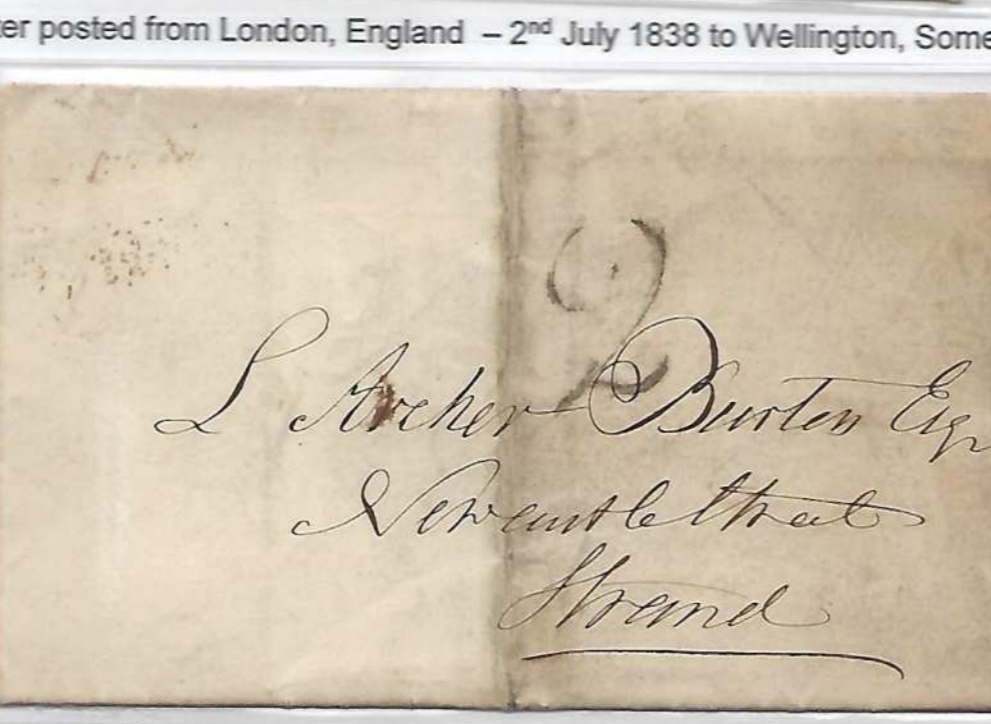 ter posted from London, England – 2nd July 1838 to Wellington, Some
2
L Archer Burton Esqr
Newcastle Street
Strand